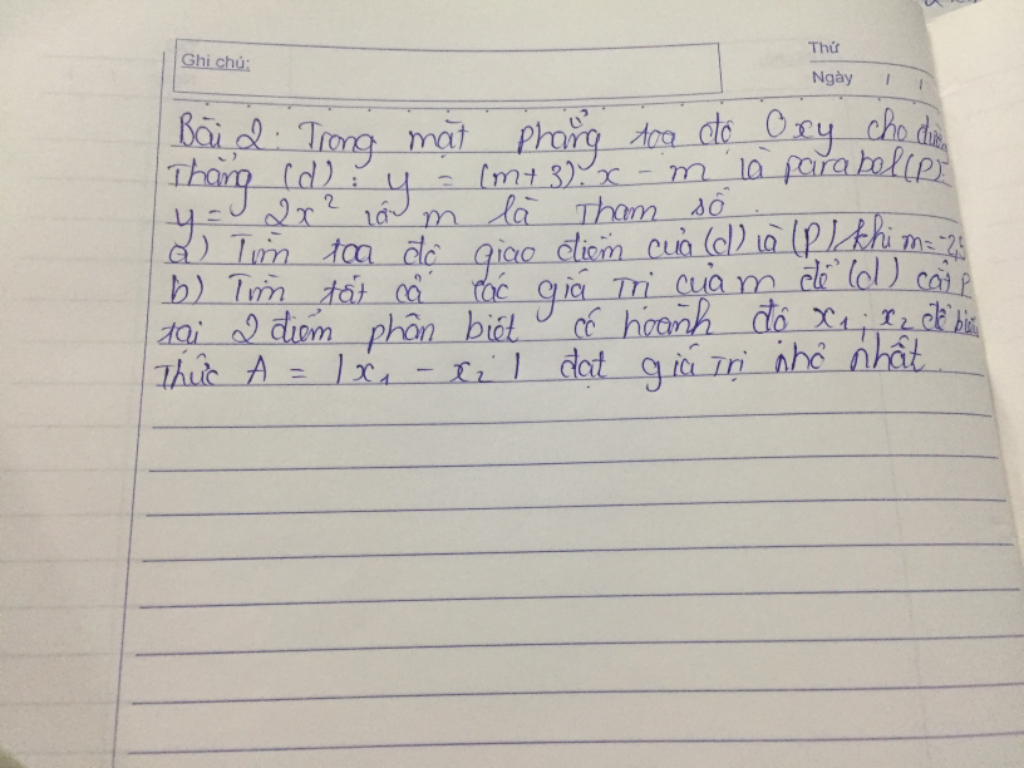 Ghi chú:
Thứ
Ngày / /
Bài 2: Trong mặt phẳng tọa độ Oxy cho đường
Thẳng (d): y = (m+3).x - m là parabol (P):
y = 2x² và m là Tham số.
a) Tìm tọa độ giao điểm của (d) và (P) khi m=-2,5
b) Tìm tất cả các giá trị của m để (d) cắt P
tại 2 điểm phân biệt có hoành độ x₁; x₂ để biểu
Thức A = |x₁ - x₂| đạt giá trị nhỏ nhất.